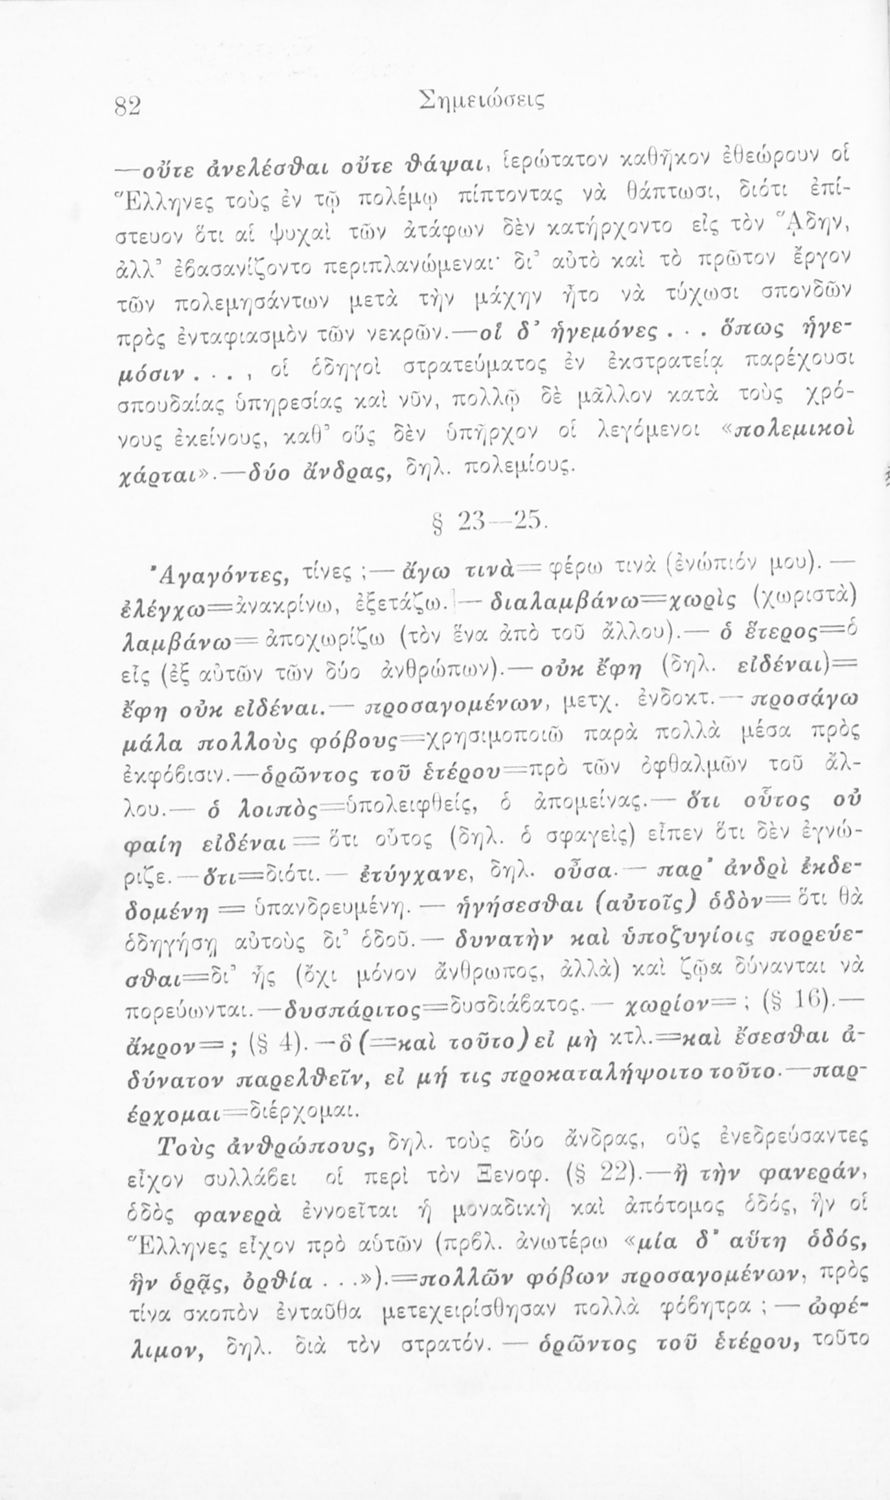 82 Σημειώσεις
—οὔτε ἀνελέσθαι οὔτε θάψαι, ἱερώτατον καθῆκον ἐθεώρουν οἱ
Ἕλληνες τοὺς ἐν τῷ πολέμῳ πίπτοντας νὰ θάπτωσι, διότι ἐπί-
στευον ὅτι αἱ ψυχαὶ τῶν ἀτάφων δὲν κατήρχοντο εἰς τὸν Ἅδην,
ἀλλ’ ἐβασανίζοντο περιπλανώμεναι· δι’ αὐτὸ καὶ τὸ πρῶτον ἔργον
τῶν πολεμησάντων μετὰ τὴν μάχην ἦτο νὰ τύχωσι σπονδῶν
πρὸς ἐνταφιασμὸν τῶν νεκρῶν.—οἱ δ’ ἡγεμόνες . . . ὅπως ἡγε-
μόσιν . . . , οἱ ὁδηγοὶ στρατεύματος ἐν ἐκστρατείᾳ παρέχουσι
σπουδαίας ὑπηρεσίας καὶ νῦν, πολλῷ δὲ μᾶλλον κατὰ τοὺς χρό-
νους ἐκείνους, καθ’ οὓς δὲν ὑπῆρχον οἱ λεγόμενοι «πολεμικοὶ
χάρται».—δύο ἄνδρας, δηλ. πολεμίους.
§ 23—25.
Ἀγαγόντες, τίνες ;— ἄγω τινὰ=φέρω τινὰ (ἐνώπιόν μου). —
ἐλέγχω=ἀνακρίνω, ἐξετάζω. — διαλαμβάνω=χωρὶς (χωριστὰ)
λαμβάνω= ἀποχωρίζω (τὸν ἕνα ἀπὸ τοῦ ἄλλου).— ὁ ἕτερος=ὁ
εἷς (ἐξ αὐτῶν τῶν δύο ἀνθρώπων).— οὐκ ἔφη (δηλ. εἰδέναι)=
ἔφη οὐκ εἰδέναι.— προσαγομένων, μετχ. ἐνδοκτ.— προσάγω
μάλα πολλοὺς φόβους=χρησιμοποιῶ παρὰ πολλὰ μέσα πρὸς
ἐκφόβισιν.—ὁρῶντος τοῦ ἑτέρου=πρὸ τῶν ὀφθαλμῶν τοῦ ἄλ-
λου.— ὁ λοιπὸς=ὑπολειφθείς, ὁ ἀπομείνας.— ὅτι οὗτος οὐ
φαίη εἰδέναι = ὅτι οὗτος (δηλ. ὁ σφαγεὶς) εἶπεν ὅτι δὲν ἐγνώ-
ριζε.—ὅτι=διότι.— ἐτύγχανε, δηλ. οὖσα.— παρ’ ἀνδρὶ ἐκδε-
δομένη = ὑπανδρευμένη. — ἡγήσεσθαι (αὐτοῖς) ὁδὸν=ὅτι θὰ
ὁδηγήσῃ αὐτοὺς δι’ ὁδοῦ.— δυνατὴν καὶ ὑποζυγίοις πορεύε-
σθαι=δι’ ἧς (ὄχι μόνον ἄνθρωπος, ἀλλὰ) καὶ ζῷα δύνανται νὰ
πορεύωνται.—δυσπάριτος=δυσδιάβατος.— χωρίον= ; (§ 16).—
ἄκρον= ; (§ 4).—ὃ (=καὶ τοῦτο) εἰ μὴ κτλ.=καὶ ἔσεσθαι ἀ-
δύνατον παρελθεῖν, εἰ μή τις προκαταλήψοιτο τοῦτο.—παρ-
έρχομαι=διέρχομαι.
Τοὺς ἀνθρώπους, δηλ. τοὺς δύο ἄνδρας, οὓς ἐνεδρεύσαντες
εἶχον συλλάβει οἱ περὶ τὸν Ξενοφ. (§ 22).—ἢ τὴν φανεράν,
ὁδὸς φανερὰ ἐννοεῖται ἡ μοναδικὴ καὶ ἀπότομος ὁδός, ἣν οἱ
Ἕλληνες εἶχον πρὸ αὑτῶν (πρβλ. ἀνωτέρω «μία δ’ αὕτη ὁδός,
ἣν ὁρᾷς, ὀρθία . . .»).=πολλῶν φόβων προσαγομένων, πρὸς
τίνα σκοπὸν ἐνταῦθα μετεχειρίσθησαν πολλὰ φόβητρα ; — ὠφέ-
λιμον, δηλ. διὰ τὸν στρατόν. — ὁρῶντος τοῦ ἑτέρου, τοῦτο